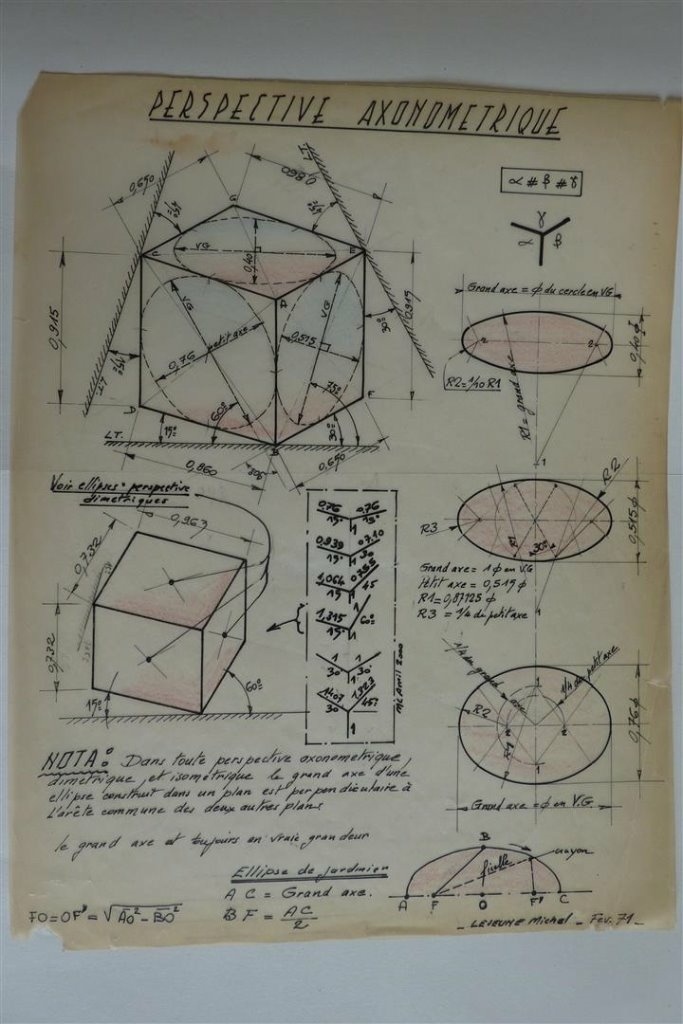 PERSPECTIVE AXONOMETRIQUE
α # β # γ
γ
α β
0,650
0,860
LT
45°
45°
G
C
E
VG
0,40
A
VG
VG
0,76
petit axe
0,515
0,915
0,915
30°
45°
LT
60°
75°
A
F
B
15°
30°
LT.
0,860
0,650
Grand axe = ϕ du cercle en VG
0,40 ϕ
2
2
R2 = 1/10 R1
R1 = grand axe
1
Voir ellipses perspective
dimetriques
0,963
0,732
0,732
15°
60°
0,76 0,76
15° 15°
0,939 0,710
15° 30
1,064
15 45
1,315
15° 60°
1 1
30 30°
1407 1,323
30 45°
1
R2
R3
R1
30°
0,515 ϕ
Grand axe = 1 ϕ en VG
Petit axe = 0,515 ϕ
R1 = 0,87725 ϕ
R3 = 1/4 du petit axe
1
1/4 du grand axe
1/4 du petit axe
R2
R1
1
1
0,76 ϕ
Grand axe = ϕ en V.G.
NOTA: Dans toute perspective axonometrique,
dimetrique, et isométrique le grand axe d'une
ellipse construit dans un plan est perpendiculaire à
l'arête commune des deux autres plans
le grand axe est toujours en vraie grandeur
Ellipse de jardinier
A C = Grand axe.
B F = AC/2
FO = OF' = √AO² - BO²
B
ficelle
crayon
A F O F' C
_ LEJEUNE Michel _ Fev. 71 _